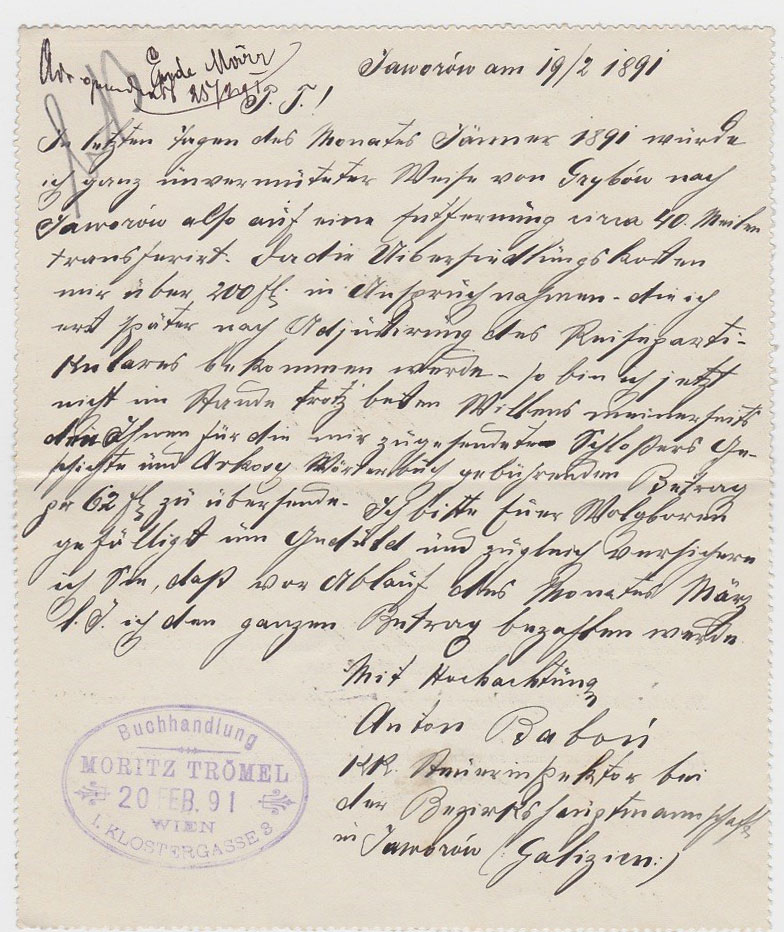 Ende März
25/2 91
Jaworów am 19/2 1891
P. T.!
In letzten Tagen des Monates Jänner 1891 wurde
ich ganz unvermuteter Weise von Grybów nach
Jaworów also auf eine Entfernung circa 40. Meilen
transferirt. Da die Uibersiedlungskosten
mir über 200 fl. in Anspruch nahmen - die ich
erst später nach Adjustirung des Reiseparti-
kulares bekommen werde - so bin ich jetzt
nicht im Stande trotz besten Willens meinerseits
den Ihnen für die mir zugesendete Schloßers Ge-
schichte und Arkosy Wörterbuch gebührenden Betrag
pr 62 fl zu übersende. Ich bitte Euer Wolgboren
gefälligst um Geduld und zugleich versichere
ich Sie, daß vor Ablauf des Monates März
l. J. ich den ganzen Betrag bezahlen werde
Mit Hochachtung
Anton
KK. Steuerinspektor bei
der Bezirkshauptmannschaft
in Jaworów (Galizien.)
Buchhandlung
MORITZ TRÖMEL
20 FEB. 91
WIEN
I. KLOSTERGASSE 3